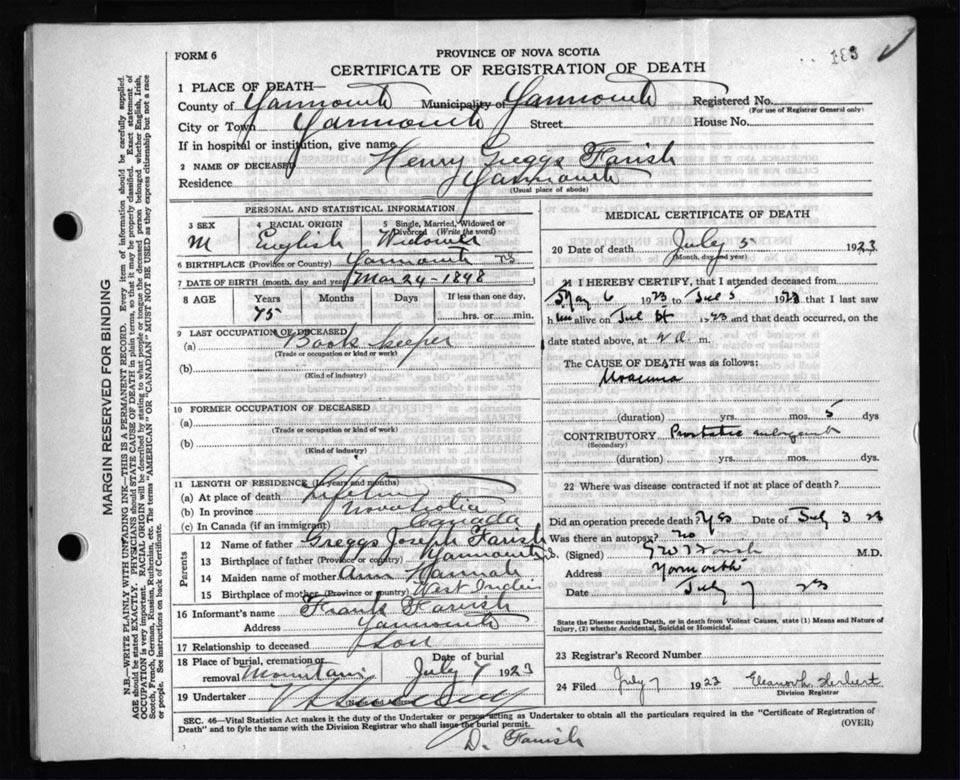 FORM 6
PROVINCE OF NOVA SCOTIA
CERTIFICATE OF REGISTRATION OF DEATH
1 PLACE OF DEATH—
County of Yarmouth Municipality of Yarmouth Registered No.
(For use of Registrar General only)
City or Town Yarmouth Street House No.
If in hospital or institution, give name
2 NAME OF DECEASED Henry Greggs Farish
Residence Yarmouth
(Usual place of abode)
PERSONAL AND STATISTICAL INFORMATION
3 SEX M
4 RACIAL ORIGIN English
5 Single, Married, Widowed or Divorced (Write the word) Widower
6 BIRTHPLACE (Province or Country) Yarmouth NS
7 DATE OF BIRTH (month, day and year) Mar 24-1848
8 AGE Years Months Days If less than one day,
75 hrs. or min.
9 LAST OCCUPATION OF DECEASED
(a) Book keeper
(Trade or occupation or kind or work)
(b)
(Kind of industry)
10 FORMER OCCUPATION OF DECEASED
(a)
(Trade or occupation or kind of work)
(b)
(Kind of industry)
11 LENGTH OF RESIDENCE (In years and months)
(a) At place of death Lifetime
(b) In province Nova Scotia
(c) In Canada (if an immigrant) Canada
Parents
12 Name of father Greggs Joseph Farish
13 Birthplace of father (Province or country) Yarmouth N.S.
14 Maiden name of mother Ann Hannah
15 Birthplace of mother (Province or country) West Indies
16 Informant's name Frank Farish
Address Yarmouth
17 Relationship to deceased Son
18 Place of burial, cremation or removal Mountain Date of burial July 7 1923
19 Undertaker
MEDICAL CERTIFICATE OF DEATH
20 Date of death July 5 1923
(Month, day and year)
21 I HEREBY CERTIFY, that I attended deceased from
May 6 1923 to Jul 5 1923 that I last saw
him alive on Jul 1923 and that death occurred, on the
date stated above, at m.
The CAUSE OF DEATH was as follows:
Uraemia
(duration) yrs. mos. 5 dys
CONTRIBUTORY Prostatic
(Secondary)
(duration) yrs. mos. dys.
22 Where was disease contracted if not at place of death?
Did an operation precede death? Yes Date of July 3 23
Was there an autopsy? no
(Signed) M.D.
Address Yarmouth
Date July 7 23
State the Disease causing Death, or in death from Violent Causes, state (1) Means and Nature of Injury, (2) whether Accidental, Suicidal or Homicidal.
23 Registrar's Record Number
24 Filed July 7 1923 Eleanor L. Herbert
Division Registrar
SEC. 46—Vital Statistics Act makes it the duty of the Undertaker or person acting as Undertaker to obtain all the particulars required in the "Certificate of Registration of
Death" and to fyle the same with the Division Registrar who shall issue the burial permit. (OVER)
D. Farish
MARGIN RESERVED FOR BINDING
N.B.—WRITE PLAINLY WITH UNFADING INK—THIS IS A PERMANENT RECORD. Every item of information should be carefully supplied.
AGE should be stated EXACTLY. PHYSICIANS should STATE CAUSE OF DEATH in plain terms, so that it may be properly classified. Exact statement of
OCCUPATION is very important. RACIAL ORIGIN will be described by stating to what people or tongue the deceased person belonged whether English, Irish,
Scotch, French, German, Russian, Ruthenian, etc. The terms "AMERICAN" or "CANADIAN" MUST NOT BE USED as they express citizenship but not a race
or people. See instructions on back of Certificate.